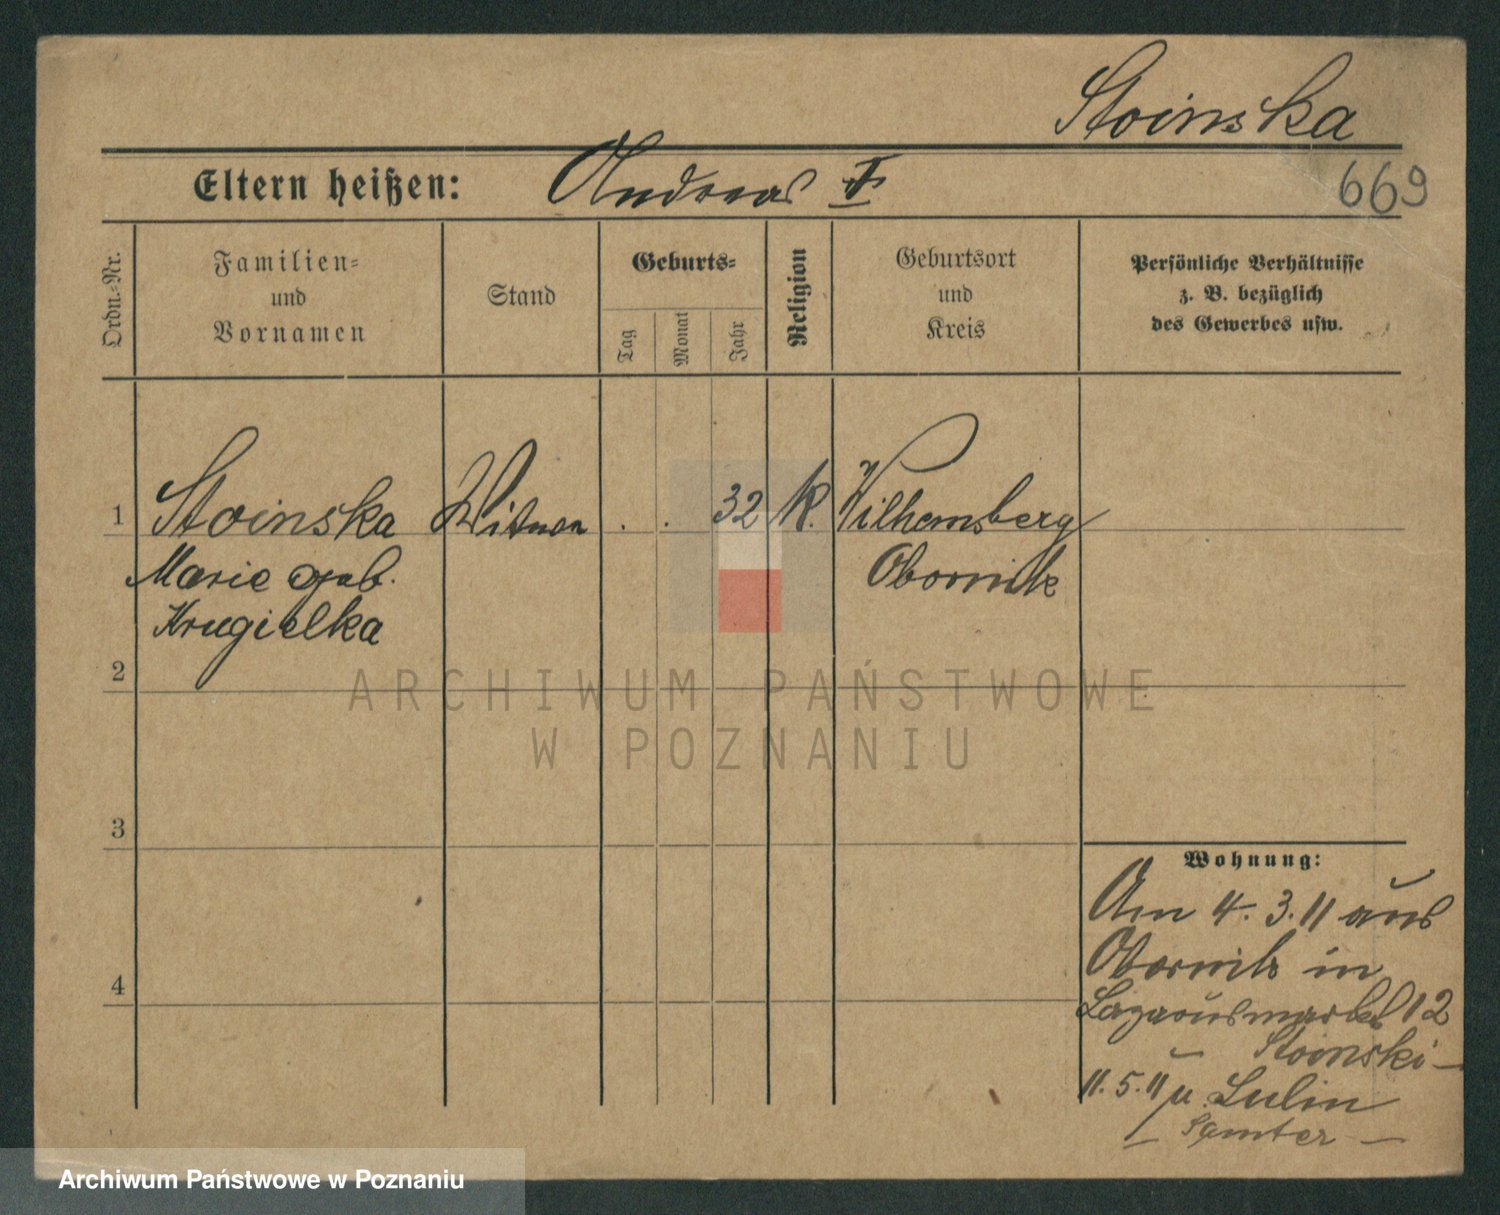 Stoinska
Eltern heißen: Andreas †
669
Ordn.-Nr.
Familien-
und
Vornamen
Stand
Geburts-
Tag
Monat
Jahr
Religion
Geburtsort
und
Kreis
Persönliche Verhältnisse
z. B. bezüglich
des Gewerbes usw.
1 Stoinska Witwe . . 32 K. Wilhemsberg
Marie geb. Obornik
Krugielka
2
3
4
Wohnung:
Am 4.3.11 aus
Obornik in
Lazarusmarkt 12
Stoinski
11.5.11 u. Lulin
Samter
ARCHIWUM PAŃSTWOWE
W POZNANIU
Archiwum Państwowe w Poznaniu